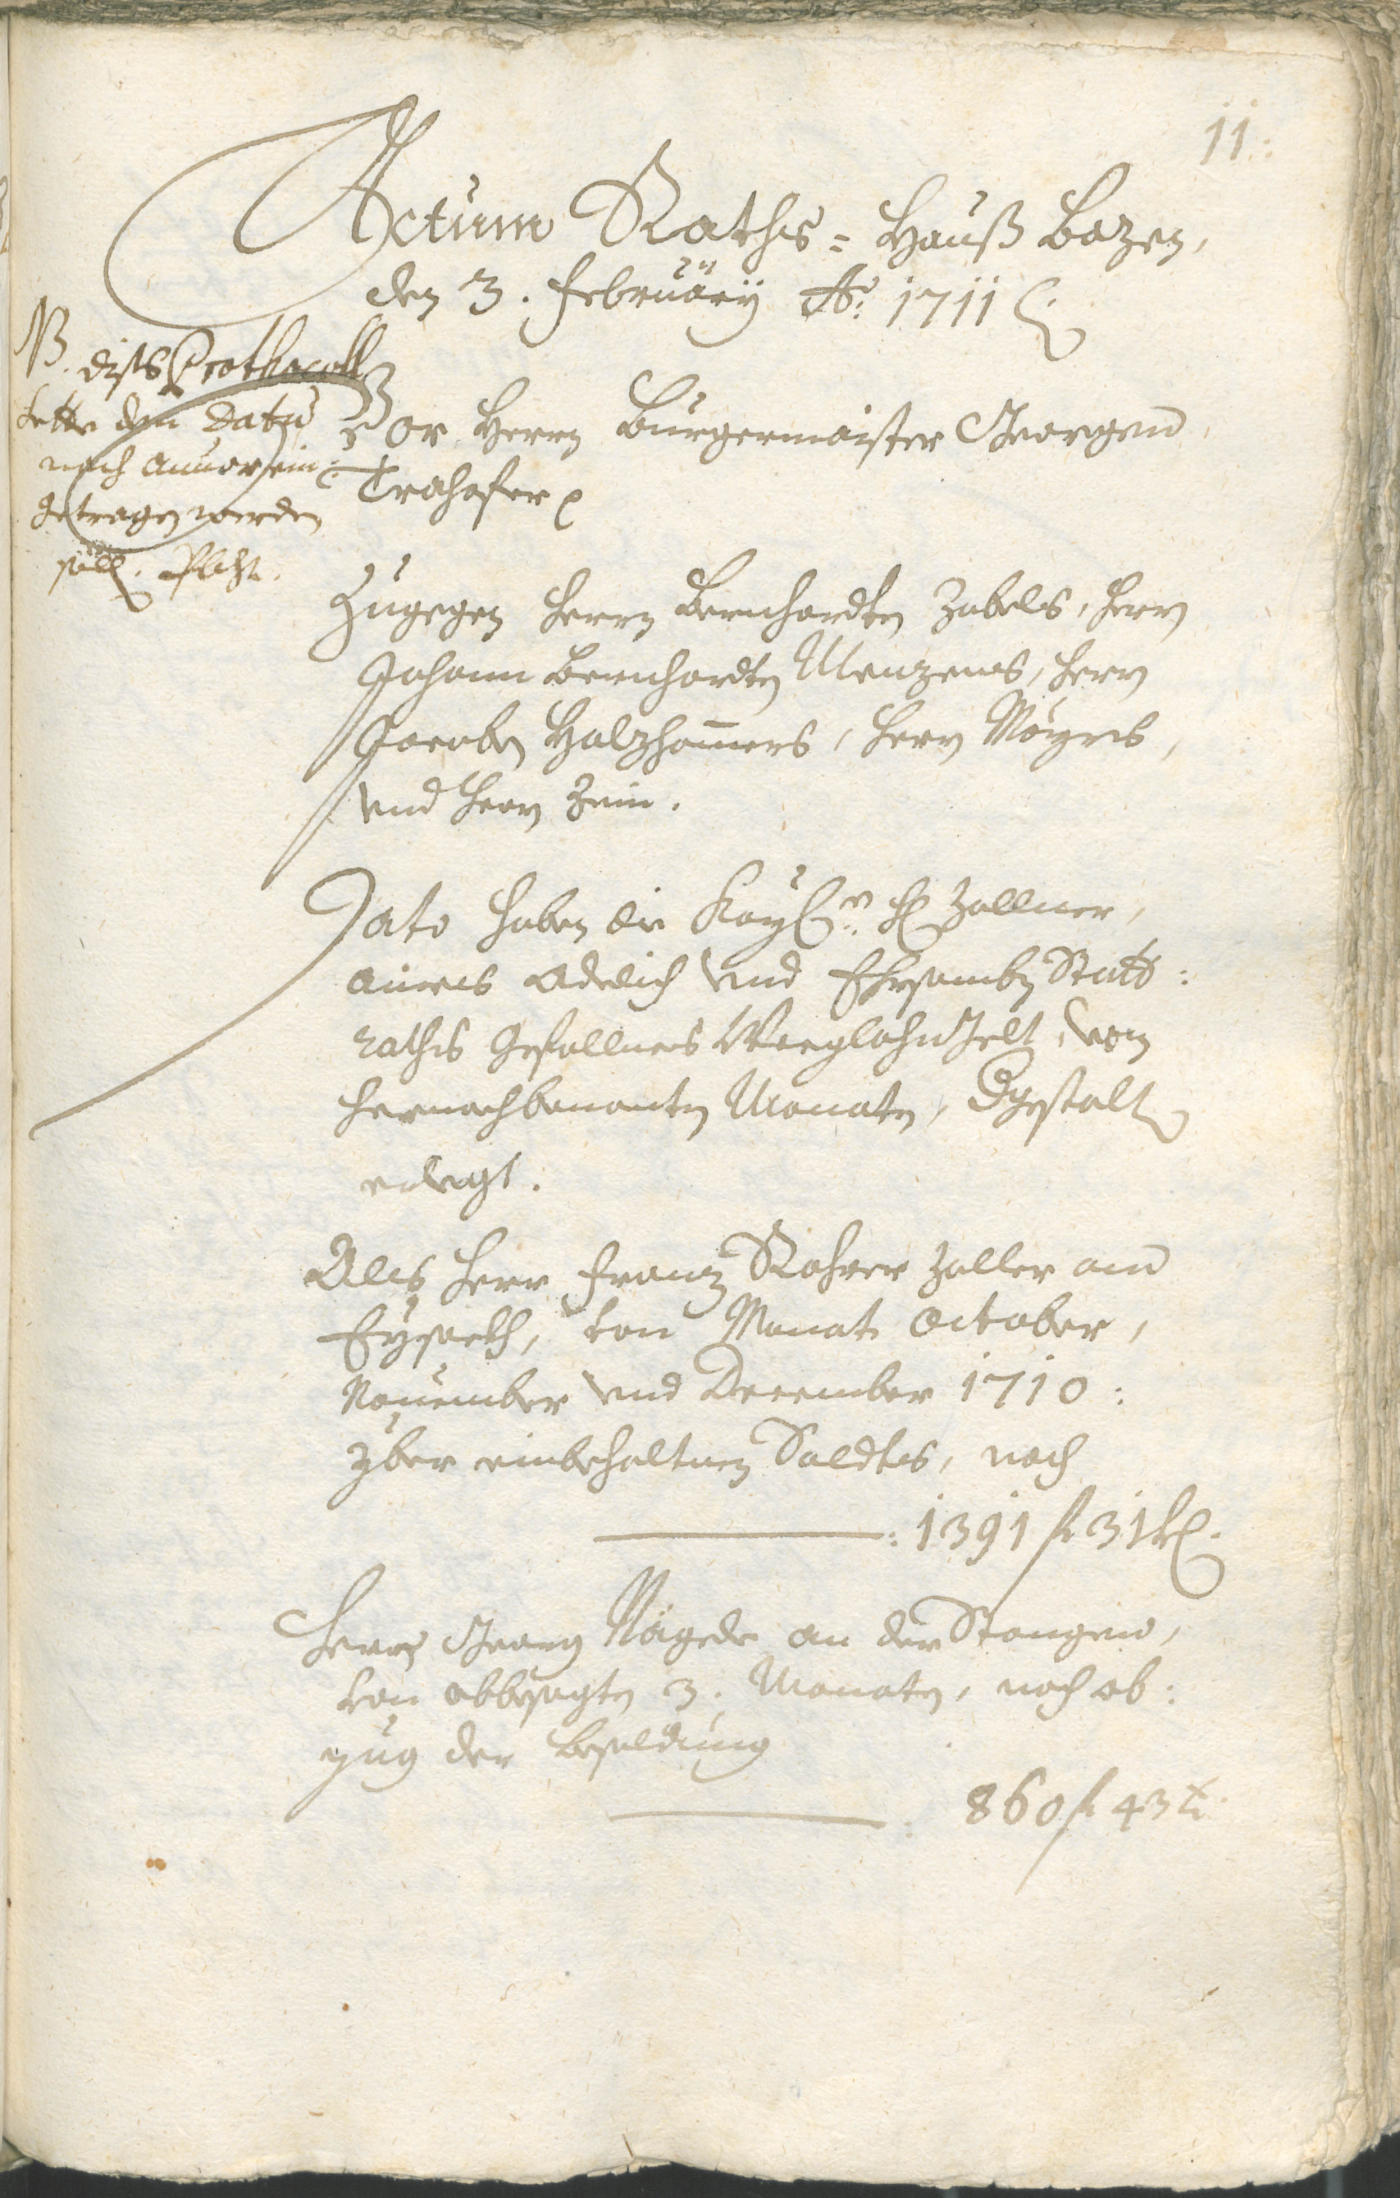 11.
Actum Raths=Hauß Bozen,
den 3. february Ao. 1711
NB. diss Prothocoll
hette dem Dato
nach anuor ein-
getragen werden
soll.
Vor Herrn Burgermaister Georgen
Trohofer
Zugegen Herrn Bernhardten Zobels, Herrn
Johann Bernhardten Menzens, Herrn
Jacoben Holzhamers, Herrn Mayrs,
vnd Herrn Zein.
Dato haben die Kay: Zollner,
aines Adelich vnd Ehrsamben Statt:
raths gefallnes Weeglohn Gelt, von
hernachbenanten Monaten, dergestalt
erlegt.
Als Herr Franz Rohrer Zoller am
Eysackh, von Monat October,
Nouember vnd December 1710:
yber einbehaltnen Soldts, noch
1391 f 31 k
Herr Georg Mägede an der Stangen,
von obbesagten 3. Monaten, noch ab:
zug der besoldung
860 f 43 k